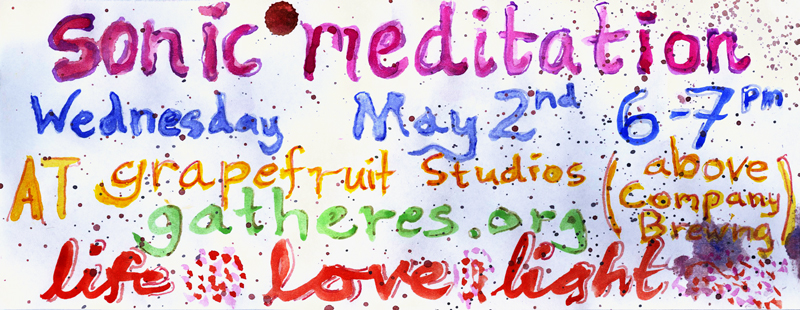 sonic meditation
Wednesday May 2nd 6-7pm
AT grapefruit Studios (above
Company
gatheres.org Brewing)
life love light